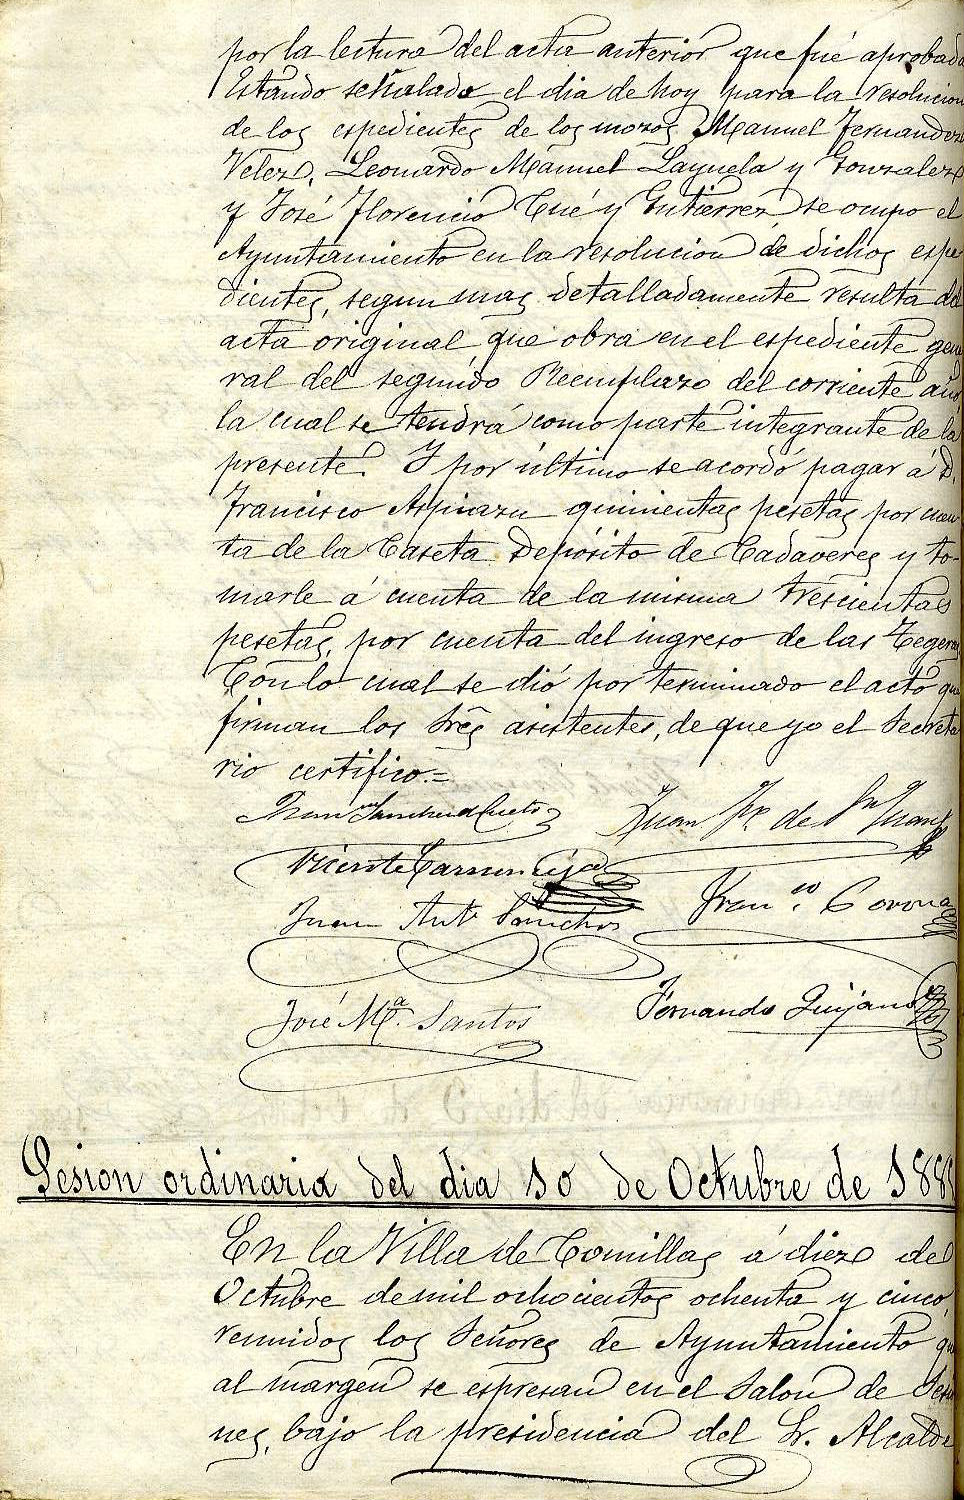 por la lectura del acta anterior que fué aprobada
Estando señalado el dia de hoy para la resolucion
de los espedientes de los mozos Manuel Fernandez
Velez, Leonardo Manuel Layuela y Gonzalez
y José Florencio Cué y Gutierrez se ocupo el
Ayuntamiento en la resolucion de dichos espe
dientes, segun mas detalladamente resulta del
acta original que obra en el espediente gene
ral del segundo Reemplazo del corriente año
la cual se tendrá como parte integrante de la
presente. Y por último se acordó pagar á D.
Francisco Aspiazu quinientas pesetas por cuen
ta de la Caseta Depósito de Cadaveres y to-
marle á cuenta de la misma trescientas
pesetas, por cuenta del ingreso de las Tegeras
Con lo cual se dió por terminado el acto que
firman los Sres asistentes, de que yo el Secreta
rio certifico.=
Juan Fr. de Sn Juan
Vicente
Juan Antº Sanchez Franco. Corona
José Mª. Santos Fernando Quijano
Sesion ordinaria del dia 10 de Octubre de 188
En la Villa de Comillas á diez de
Octubre de mil ochocientos ochenta y cinco,
reunidos los Señores de Ayuntamiento que
al margen se espresan en el Salon de Sesio
nes, bajo la presidencia del Sr. Alcalde